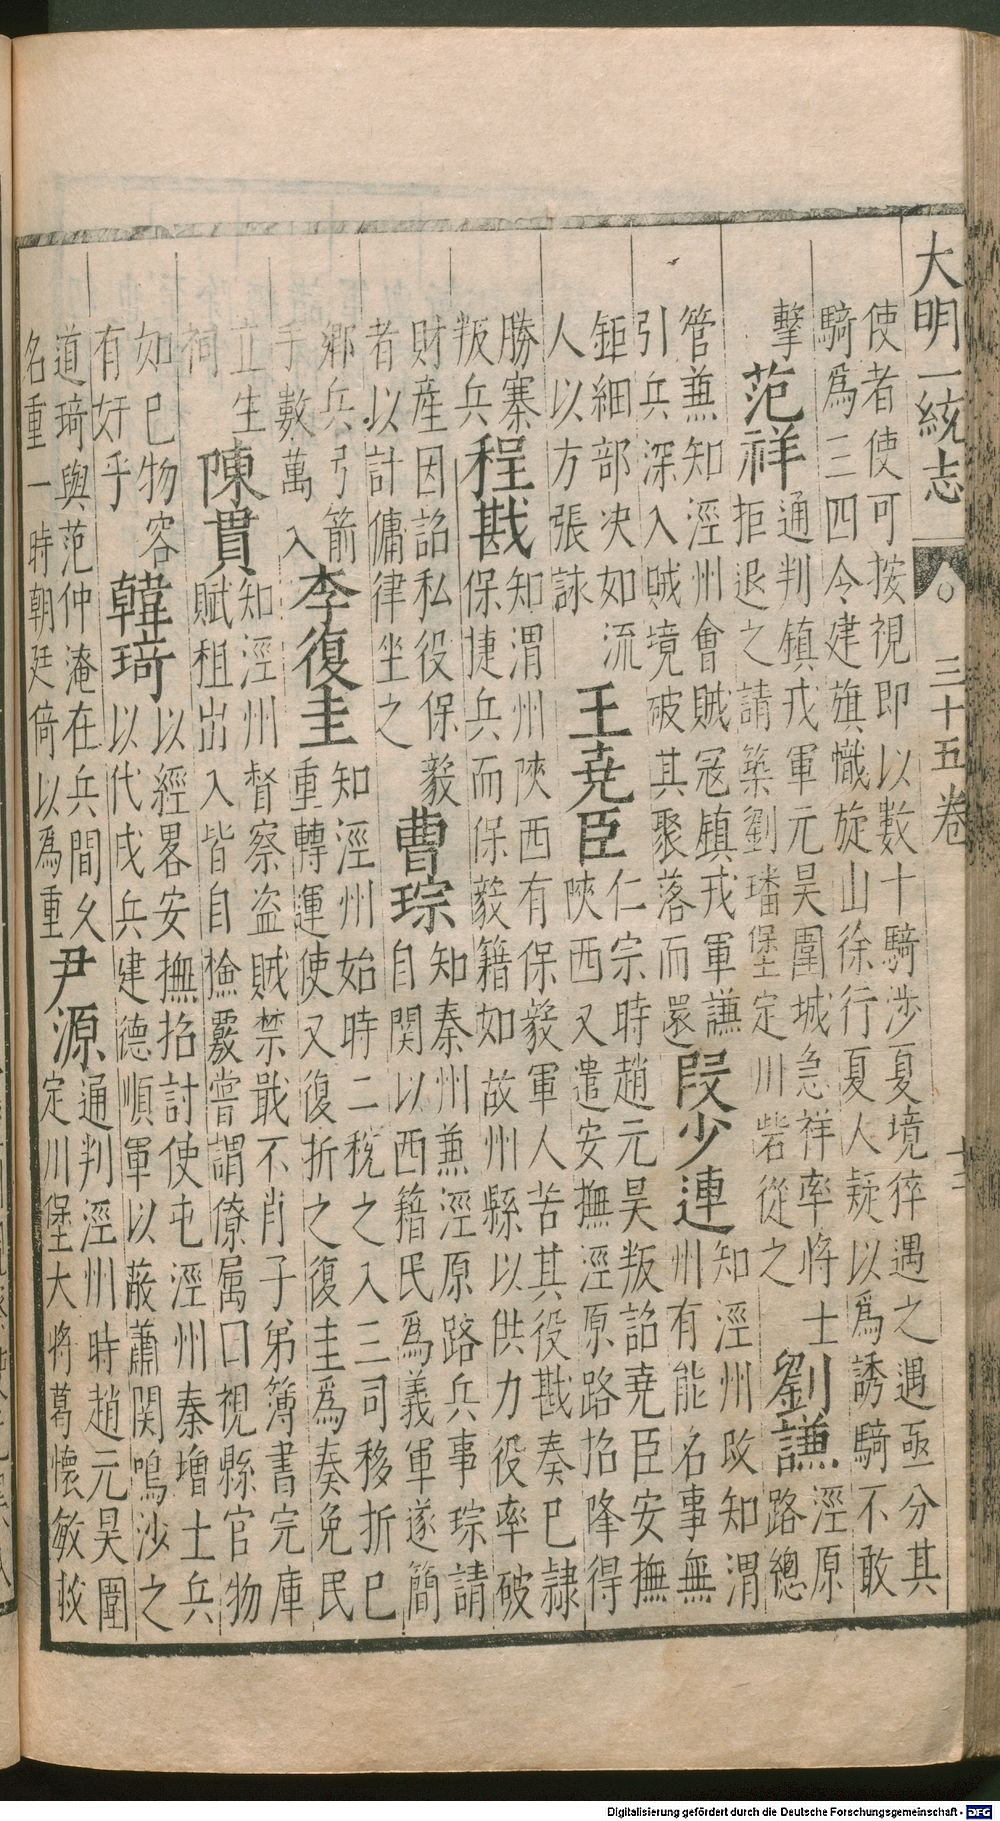 大明一統志 三十五卷 十二
使者使可按視即以數十騎涉夏境猝遇之遇亟分其
騎爲三四令建旗幟旋山徐行夏人疑以爲誘騎不敢
擊
范祥
通判鎮戎軍元昊圍城急祥率将士
拒退之請築劉璠堡定川砦從之
劉謙
涇原
路總
管兼知涇州會賊冦鎮戎軍謙
引兵深入賊境破其聚落而還
段少連
知涇州攺知渭
州有能名事無
鉅細部决如流
人以方張詠
王堯臣
仁宗時趙元昊叛詔堯臣安撫
陜西又遣安撫涇原路招降得
勝寨
叛兵
程戡
知渭州陜西有保毅軍人苦其役戡奏已隷
保捷兵而保毅籍如故州縣以供力役率破
財産因詔私役保毅
者以計傭律坐之
曹琮
知秦州兼涇原路兵事琮請
自関以西籍民爲義軍遂簡
鄉兵弓箭
手數萬入
李復圭
知涇州始時二税之入三司移折已
重轉運使又復折之復圭爲奏免民
立生
祠
陳貫
知涇州督察盗賊禁戢不肖子弟簿書完庫
賦租出入皆自撿覈嘗謂僚属曰視縣官物
如巳物容
有奸乎
韓琦
以經畧安撫招討使屯涇州秦增土兵
以代戍兵建德順軍以蔽蕭関鳴沙之
道琦與范仲淹在兵間久
名重一時朝廷倚以爲重
尹源
通判涇州時趙元昊圍
定川堡大将葛懷敏救
Digitalisierung gefördert durch die Deutsche Forschungsgemeinschaft - DFG